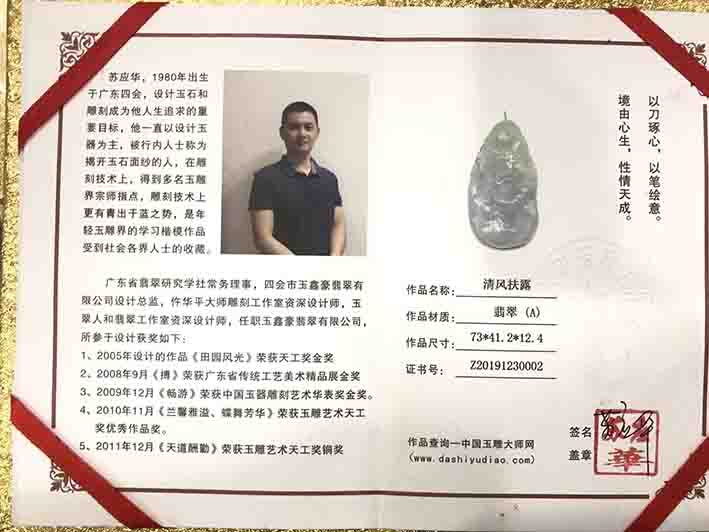 苏应华，1980年出生
于广东四会，设计玉石和
雕刻成为他人生追求的重
要目标，他一直以设计玉
器为主，被行内人士称为
揭开玉石面纱的人，在雕
刻技术上，得到多名玉雕
界宗师指点，雕刻技术上
更有青出于蓝之势，是年
轻玉雕界的学习楷模作品
受到社会各界人士的收藏。
广东省翡翠研究学社常务理事，四会市玉鑫豪翡翠有
限公司设计总监，仵华平大师雕刻工作室资深设计师，玉
翠人和翡翠工作室资深设计师，任职玉鑫豪翡翠有限公司，
所参与设计获奖如下：
1、2005年设计的作品《田园风光》荣获天工奖金奖
2、2008年9月《搏》荣获广东省传统工艺美术精品展金奖
3、2009年12月《畅游》荣获中国玉器雕刻艺术华表奖金奖。
4、2010年11月《兰馨雅溢、蝶舞芳华》荣获玉雕艺术天工
奖优秀作品奖。
5、2011年12月《天道酬勤》荣获玉雕艺术天工奖铜奖
以刀琢心，以笔绘意。
境由心生，性情天成。
作品名称：清风扶露
作品材质：翡翠（A）
作品尺寸：73*41.2*12.4
证书号：Z20191230002
作品查询—中国玉雕大师网
（www.dashiyudiao.com）
签名
盖章
華